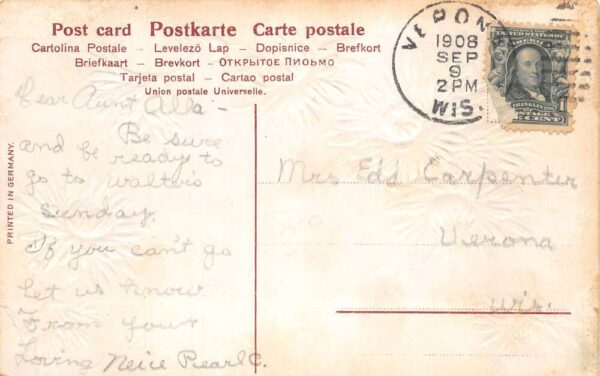 Post card Postkarte Carte postale
Cartolina Postale – Levelező Lap – Dopisnice – Brefkort
Briefkaart – Brevkort – ОТКРЫТОЕ ПИСЬМО
Tarjeta postal – Cartao postal
Union postale Universelle.
VERONA
1908
SEP
9
2 PM
WIS.
UNITED STATES OF
FRANKLIN
POSTAGE
1 CENT
PRINTED IN GERMANY.
Dear Aunt Alla –
Be sure
and be ready to
go to walter's
Sunday.
If you can't go
let us know.
From your
Loving Neice Pearl C.
Mrs Edd Carpenter
Verona
Wis.